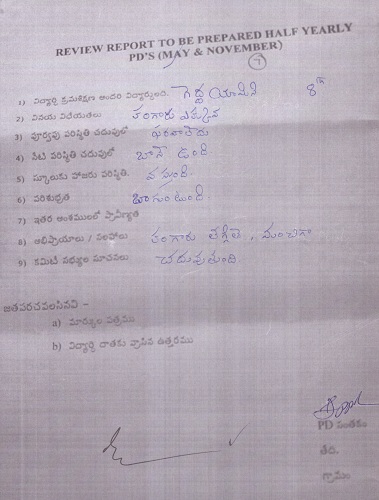 REVIEW REPORT TO BE PREPARED HALF YEARLY
PD'S (MAY & NOVEMBER)
7
1) విద్యార్థి క్రమశిక్షణ అందరి విద్యార్థులది. గెడ్డ యామిని 8th
2) వినయ విధేయతలు కంగారు ఎక్కువ
3) పూర్వపు పరిస్థితి చదువులో ఫరవాలేదు
4) నేటి పరిస్థితి చదువులో బానే ఉంది
5) స్కూలుకు హాజరు పరిస్థితి. వస్తుంది.
6) పరిశుభ్రత బాగుంటుంది.
7) ఇతర అంశములలో ప్రావీణ్యత
8) అభిప్రాయాలు / సలహాలు కంగారు తగ్గితే, మంచిగా
9) కమిటీ సభ్యుల సూచనలు చదువుతుంది.
జతపరచవలసినవి –
a) మార్కుల పత్రము
b) విద్యార్థి దాతకు వ్రాసిన ఉత్తరము
PD సంతకం
తేది.
గ్రామం